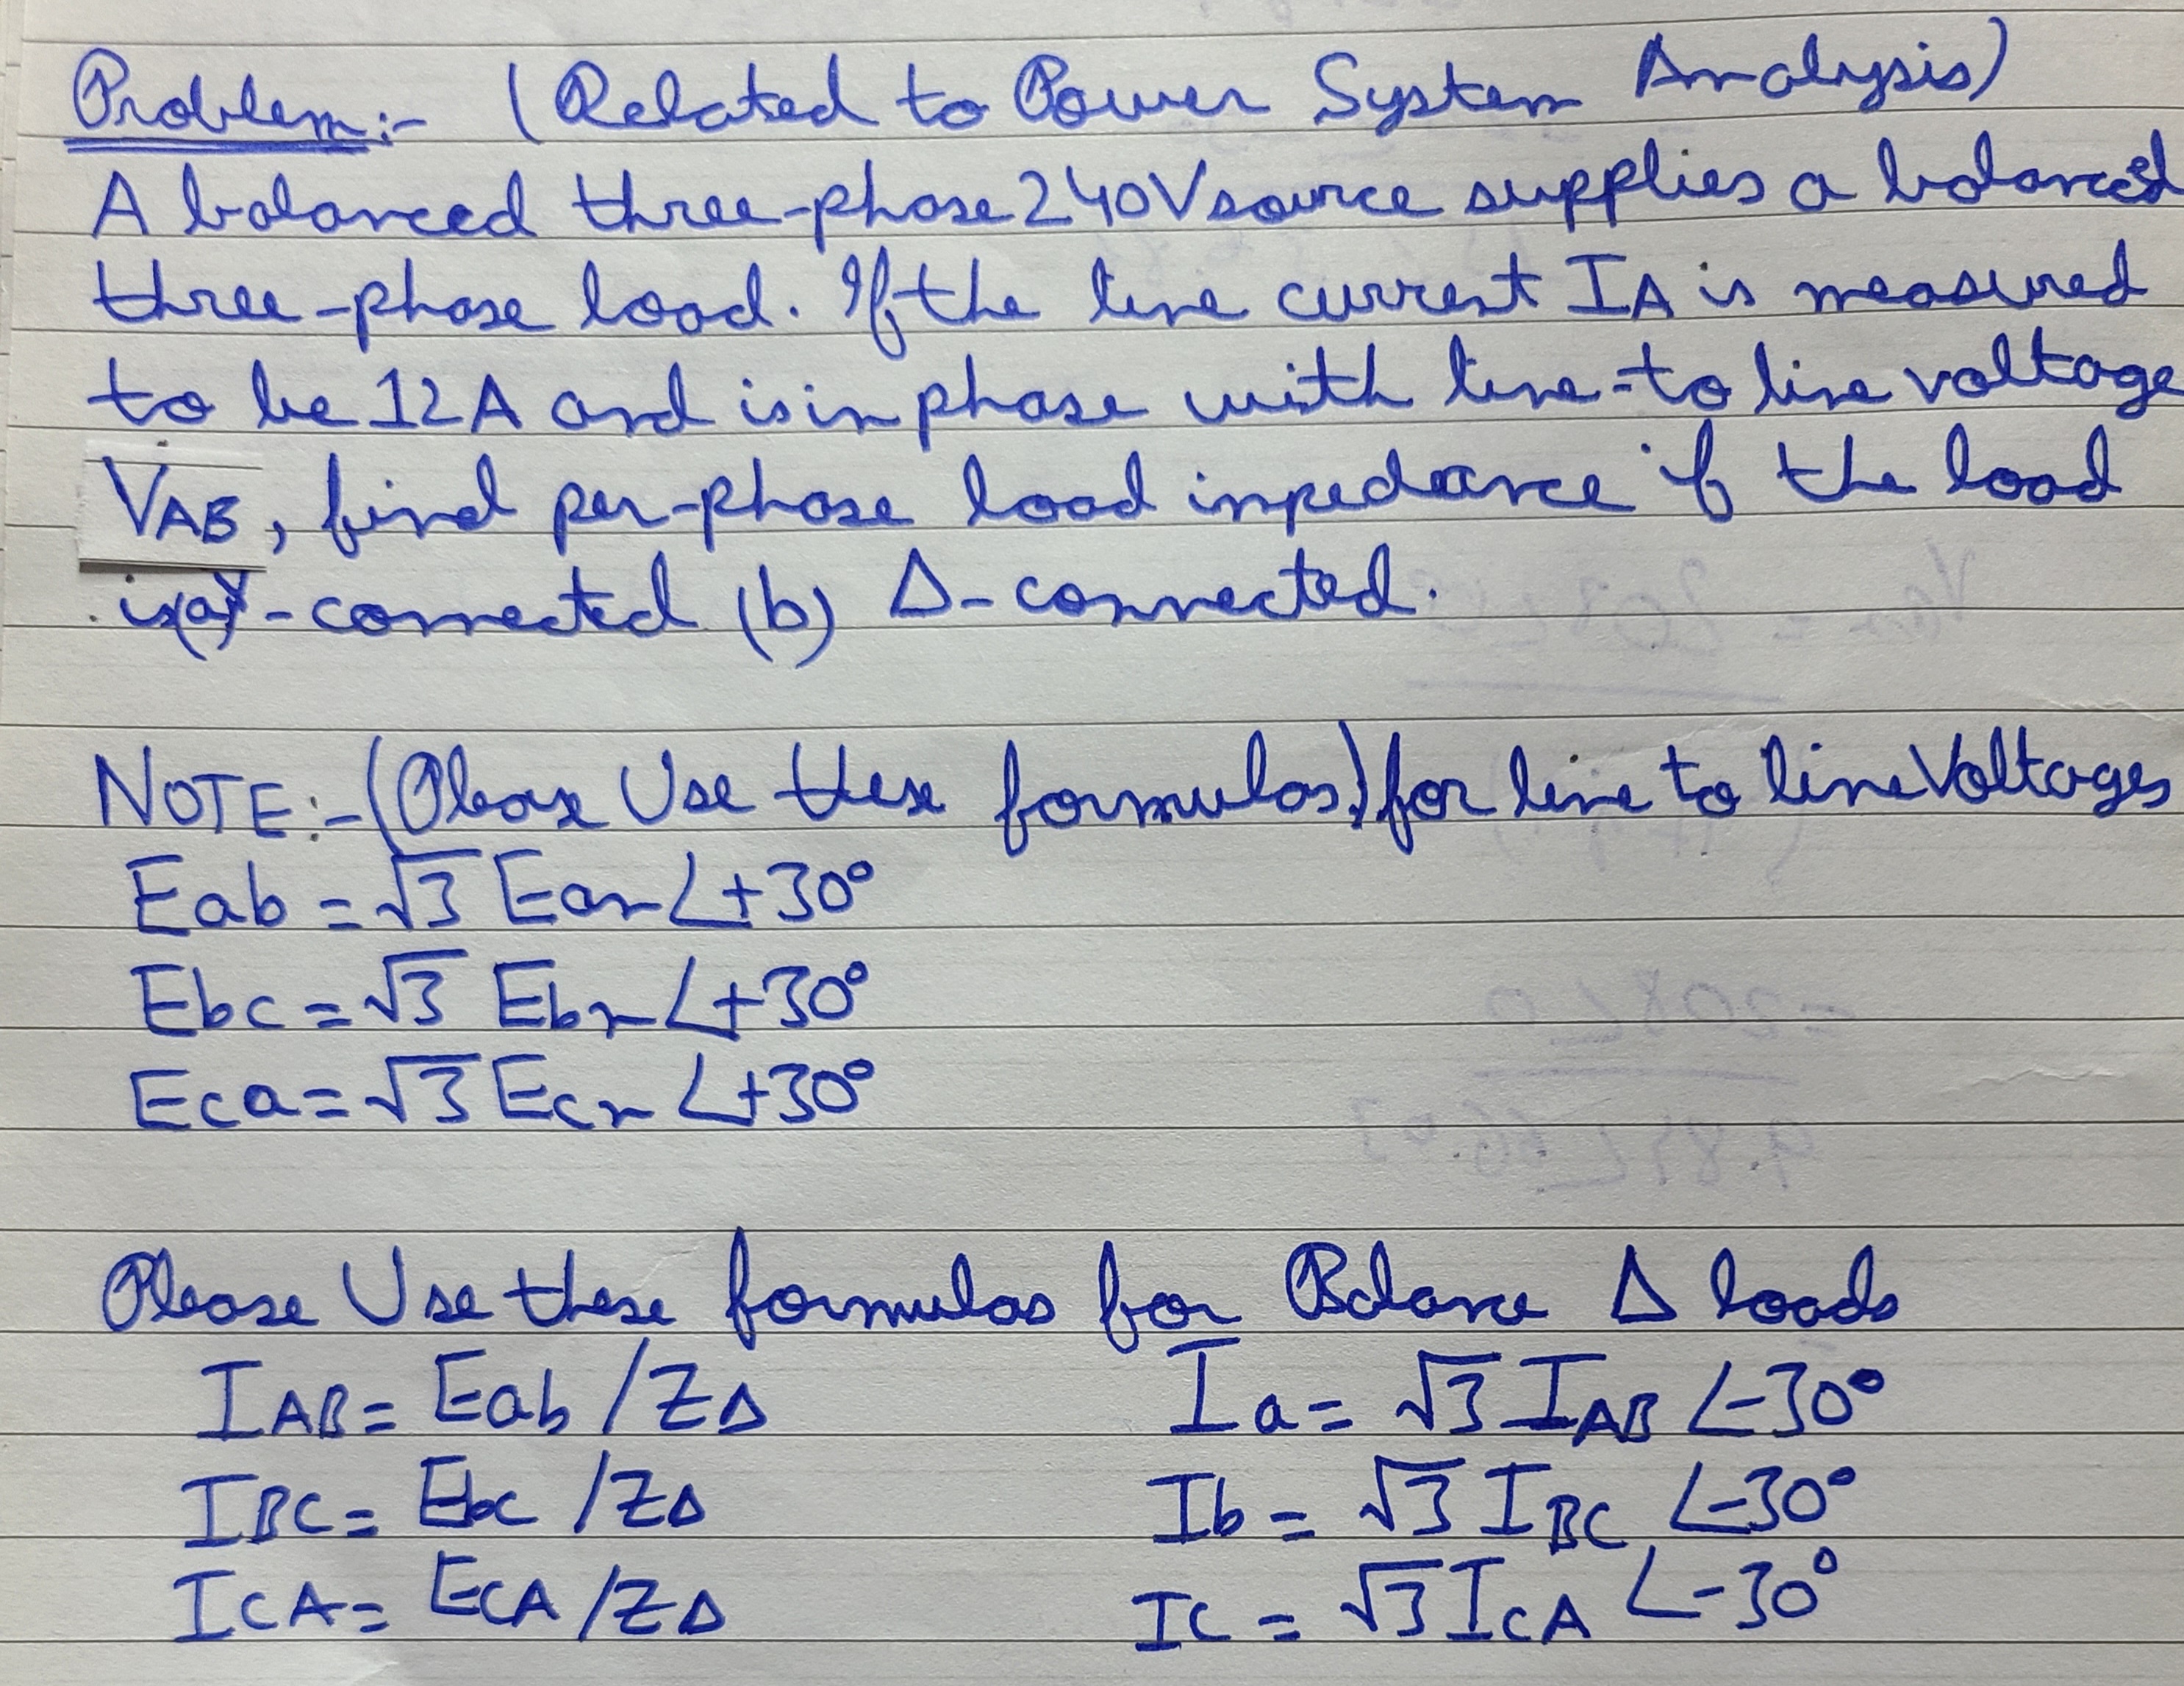 Problem:- (Related to Power System Analysis)
A balanced three-phase 240V source supplies a balanced
three-phase load. If the line current IA is measured
to be 12A and is in phase with line-to line voltage
VAB, find per-phase load impedance if the load
is(a)Y-connected (b) Δ-connected.
NOTE:- (Please Use these formulas) for line to line Voltages
Eab = √3 Ean∠+30°
Ebc = √3 Ebn∠+30°
Eca = √3 Ecn∠+30°
Please Use these formulas for Balance Δ loads
IAB = Eab /ZΔ Ia = √3 IAB ∠-30°
IBC = Ebc /ZΔ Ib = √3 IBC ∠-30°
ICA = ECA /ZΔ IC = √3 ICA ∠-30°